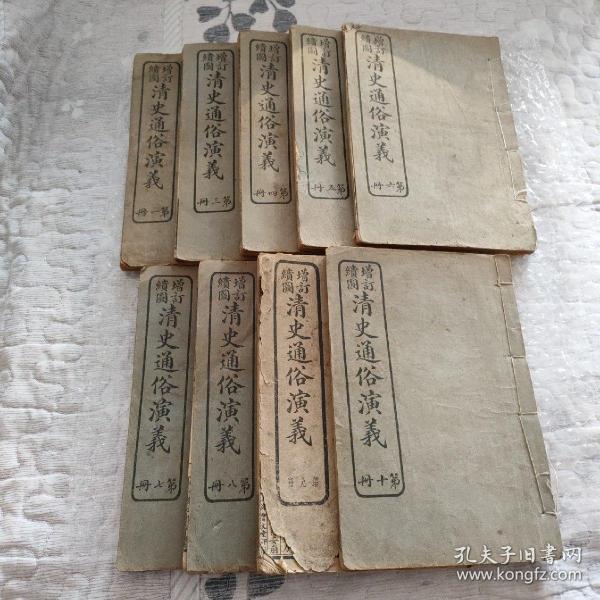 增訂
繪圖
清史通俗演義
第一冊
增訂
繪圖
清史通俗演義
第三冊
增訂
繪圖
清史通俗演義
第四冊
增訂
繪圖
清史通俗演義
第五冊
增訂
繪圖
清史通俗演義
第六冊
增訂
繪圖
清史通俗演義
第七冊
增訂
繪圖
清史通俗演義
第八冊
增訂
繪圖
清史通俗演義
增訂
繪圖
清史通俗演義
第十冊
孔夫子旧书网
www.kongfz.com